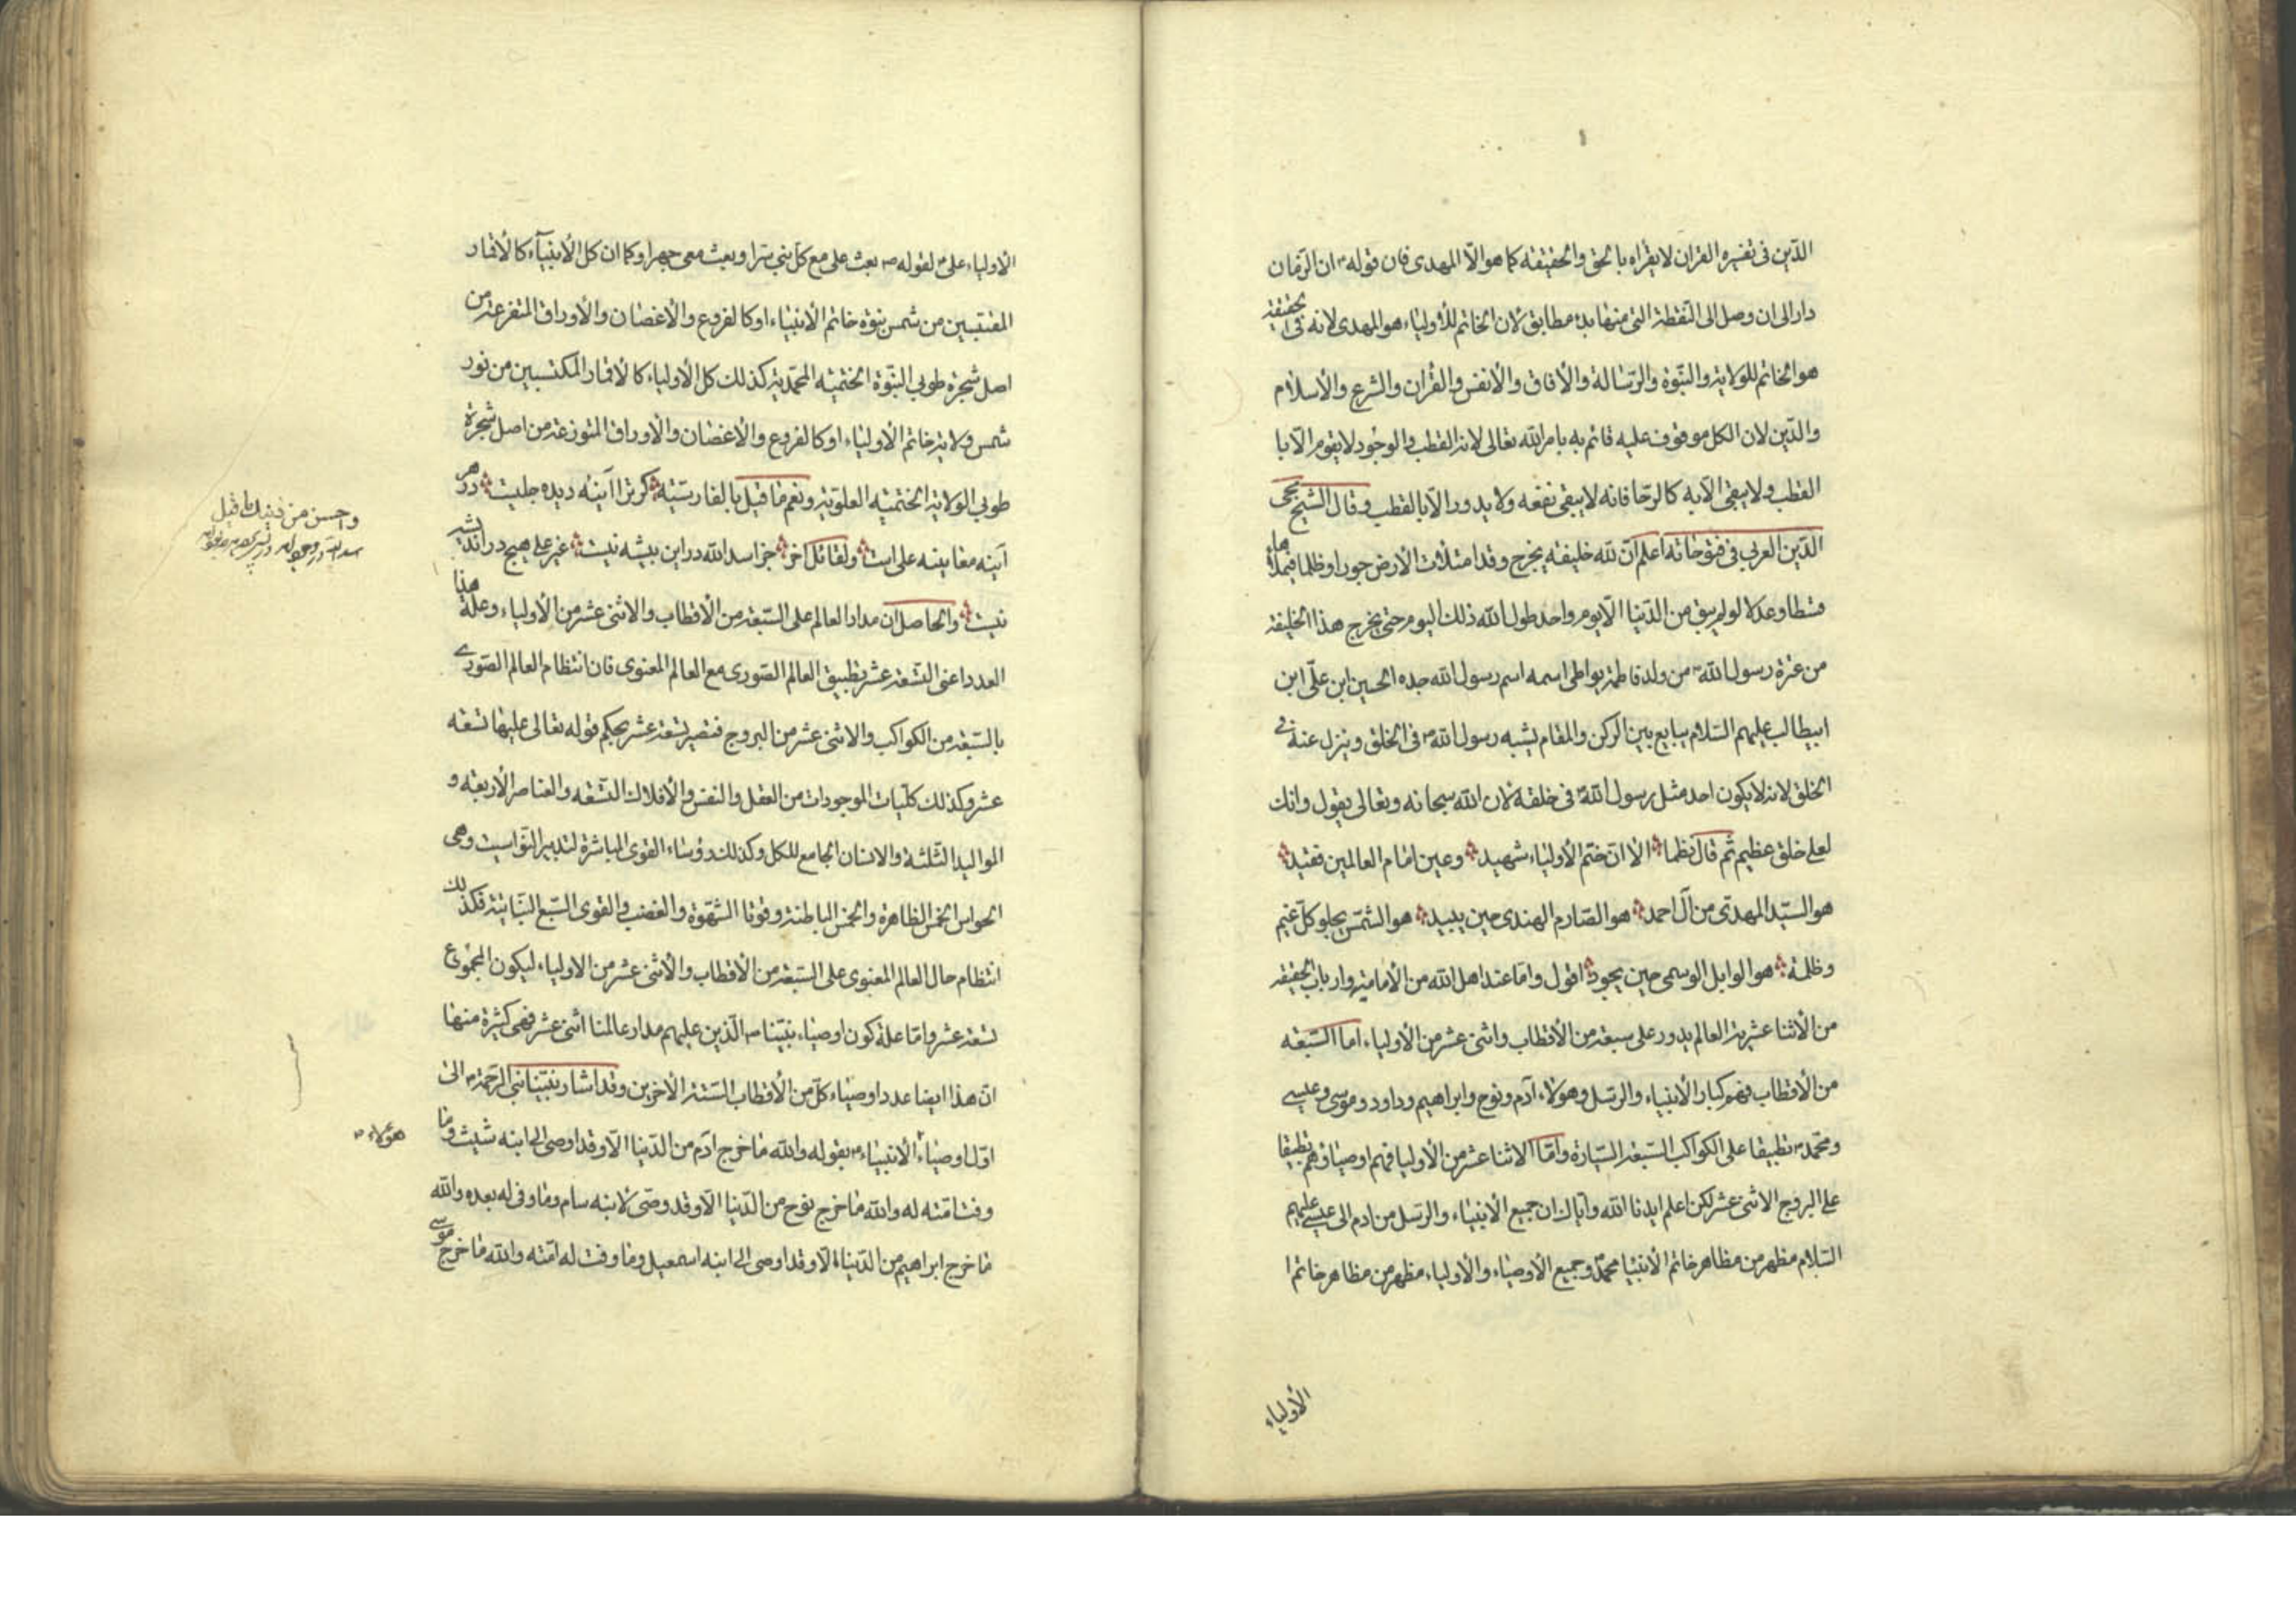 الدّين فى تفسيره القران لا يقراه بالحق والحقيقة كما هو الّا المهدى فان قوله ان الزمان
دار الى ان وصل الى النقطة التى منها بدء مطابق لان الخاتم للاولياء هو المهدى لانه فى الحقيقة
هو الخاتم للولاية والنبّوة والرّسالة والافاق والأنفس والقران والشرع والأسلام
والدّين لان الكل موقوف عليه قائم به بامر الله تعالى لانه القطب والوجود لا يقوم الّا با
القطب ولا يبقى الّا به كالرحا فانه لا يبقى نفعه ولا يدور الّا بالقطب وقال الشيخ محى
الدّين العربى فى فتوحاته اعلم انّ لله خليفة يخرج وقد امتلأت الأرض جورا وظلما فيملأها
قسطا وعدلا لو لم يبق من الدّنيا الّا يوم واحد طول الله ذلك اليوم حتى يخرج هذا الخليفة
من عترة رسول الله من ولد فاطمة يواطى اسمه اسم رسول الله جده الحسين ابن علّى ابن
ابيطالب عليهم السّلام يبايع بين الركن والمقام يشبه رسول الله فى الخلق وينزل عنه فى
الخلق لانه لا يكون احد مثل رسول الله فى خلقه لان الله سبحانه وتعالى يقول وانك
لعلى خلق عظيم ثم قال نظما الا ان ختم الأولياء شهيد وعين امام العالمين فقيد
هو السيّد المهدّى من آل احمد هو الصّارم الهندى حين يبيد هو الشمس يجلو كلّ غيم
وظلمة هو الوابل الوسمى حين يجود اقول وامّا عند اهل الله من الأمامية وارباب الحقيقة
من الأثنا عشرية العالم يدور على سبعة من الأقطاب واثنى عشر من الأولياء اما السّبعة
من الأقطاب فهم كبار الأنبياء والرسل وهؤلاء آدم ونوح وابراهيم وداود وموسى وعيسى
ومحّمد تطبيقا على الكواكب السّبعة السّيارة وامّا الاثنا عشر من الأوليا فهم اوصياؤهم تطبيقا
على البروج الاثنى عشر لكن اعلم ايدنا الله واياك ان جميع الأنبياء والرسل من ادم الى عيسى عليهم
السّلام مظهر من مظاهر خاتم الأنبيا محمّد وجميع الأوصياء والأولياء مظهر من مظاهر خاتم ا
الأولياء
الاولياء على لقوله بعث على مع كل نبى سّرا وبعث معى جهرا وكما ان كل الأنبيآء كالأقمار
المقتبسين من شمس نبوّة خاتم الأنبياء او كالفروع والأغصان والأوراق المتفرعة من
اصل شجرة طوبى النبّوة الختميه المحمّدية كذلك كل الأولياء كالأقمار المكتسبين من نور
شمس ولاية خاتم الأولياء او كالفروع والأغصان والأوراق المتوزعة من اصل شجرة
طوبى الولاية الختميه العلوّية ونعم ما قيل بالفارسّيه كر ترا آينه ديده جليست در هر
آينه معاينه على است ولقائل اخر جز اسد الله در اين بيشه نيست غير على هيچ در انديشه
نيست والحاصل ان مدار العالم على السّبعة من الأقطاب والاثنى عشر من الأولياء وعلة هذا
العدد اعنى التسّعة عشر تطبيق العالم الصّورى مع العالم المعنوى فان انتظام العالم الصّورى
بالسّبعة من الكواكب والاثنى عشر من البروج فتصير تسعة عشر بحكم قوله تعالى عليها تسعة
عشر وكذلك كلّيات الموجودات من العقل والنفس والأفلاك التسّعه والعناصر الأربعة و
المواليد الثّلثة والانسان الجامع للكل وكذلك رؤساء القوى المباشرة لتدبير النّواسيت وهى
الحواس الخمس الظاهرة والخمس الباطنة وقوتا الشّهوة والغضب والقوى السّبع النّباتية فكذلك
انتظام حال العالم المعنوى على السّبعة من الأقطاب والأثنى عشر من الاولياء ليكون المجموع
تسعة عشر وامّا علة كون اوصياء نبيّنا الّذين عليهم مدار عالمنا اثنى عشر فهى كثيرة منها
انّ هذا ايضا عدد اوصياء كلّ من الأقطاب السّتة الأخرين وقد اشار نبيّنا نبى الرّحمة الى
اوّل اوصياء الأنبياء بقوله والله ما خرج ادم من الدّنيا الّا وقد اوصى الى ابنه شيث وما
وفت امّته له والله ما خرج نوح من الدّنيا الّا وقد وصّى لابنه سام وما وفى له بعده والله
ما خرج ابراهيم من الدّنيا الّا وقد اوصى الى ابنه اسمعيل وما وفت له امّته والله ما خرج موسى
واحسن من ما قيل
هؤلاء